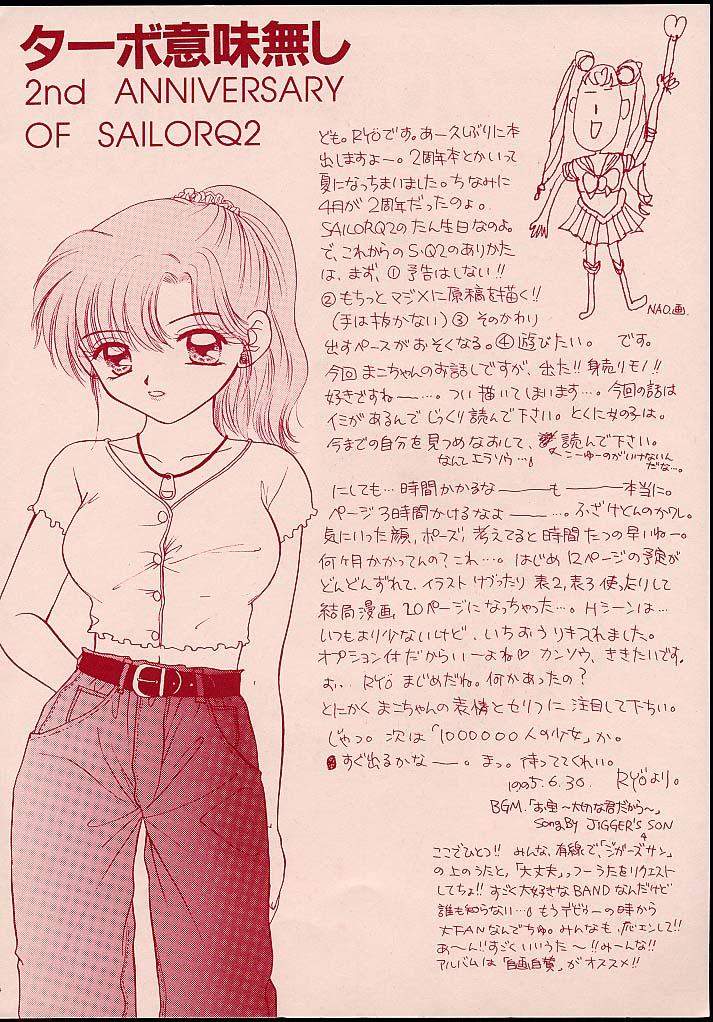 ターボ意味無し
2nd ANNIVERSARY
OF SAILORQ2
ども。RYöです。あー久しぶりに本
出しますよー。2周年本とかいって
夏になっちまいました。ちなみに
4月が2周年だったのよ。
SAILORQ2のたん生日なのよ。
で、これからのS・Q2のありかた
は、まず、①予告はしない!!
②もちっとマジメに原稿を描く!!
(手は抜かない)③そのかわり
出すペースがおそくなる。④遊びたい。です。
今回まこちゃんのお話しですが、出た!!身売りモノ!!
好きですねー…。つい描いてしまいます…。今回の話は
イミがあるんでじっくり読んで下さい。とくに女の子は。
今までの自分を見つめなおして、読んで下さい。
なんてエラソウ…。
こーゆーのがいけないん
だな…。
にしても…時間かかるな――も――本当に。
ページ3時間かけるなよ――…。ふざけとんのかワレ。
気にいった顔、ポーズ、考えてると時間たつの早いねー。
何ヶ月かかってんの?これ…。はじめ12ページの予定が
どんどんずれて、イラストけずったり表2,表3使ったりして
結局漫画20ページになっちゃった…。Hシーンは…
いつもより少ないけど、いちおうリキ入れました。
オプション付だからい〜よね♡カンソウ、ききたいです。
RYöまじめだね。何かあったの?
とにかくまこちゃんの表情とセリフに注目して下ちい。
じゃっ。次は「1000000人の少女」か。
すぐ出るかな――。まっ。待っててくれい。
1995.6.30. RYöより。
BGM.「お宝〜大切な君だから〜」
Song By JIGGER'S SON
ここでひとつ!!みんな、有線で、「ジガーズサン」
の上のうたと、「大丈夫」っつーうたをリクエスト
してちょ!!すごく大好きなBANDなんだけど
誰も知らない…。もうデビューの時から
大FANなんでちゅ。みんなも、応エンして!!
あ〜ん!!すごくいいうた〜!!み〜んな!!
アルバムは「自画自賛」がオススメ!!
NAO.画.